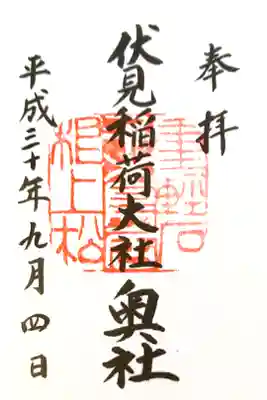 奉拝
伏見稲荷大社奥社
平成三十年九月四日